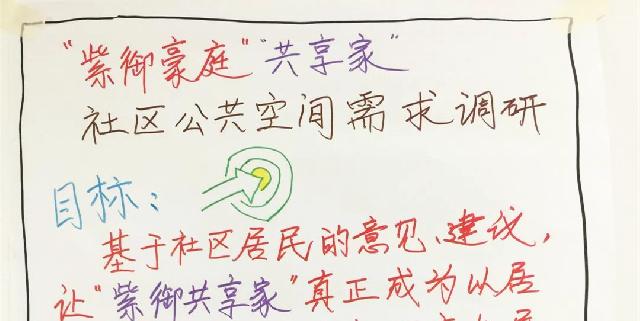 "紫御豪庭" "共享家"
社区公共空间需求调研
目标:
基于社区居民的意见、建议,
让"紫御共享家"真正成为以居